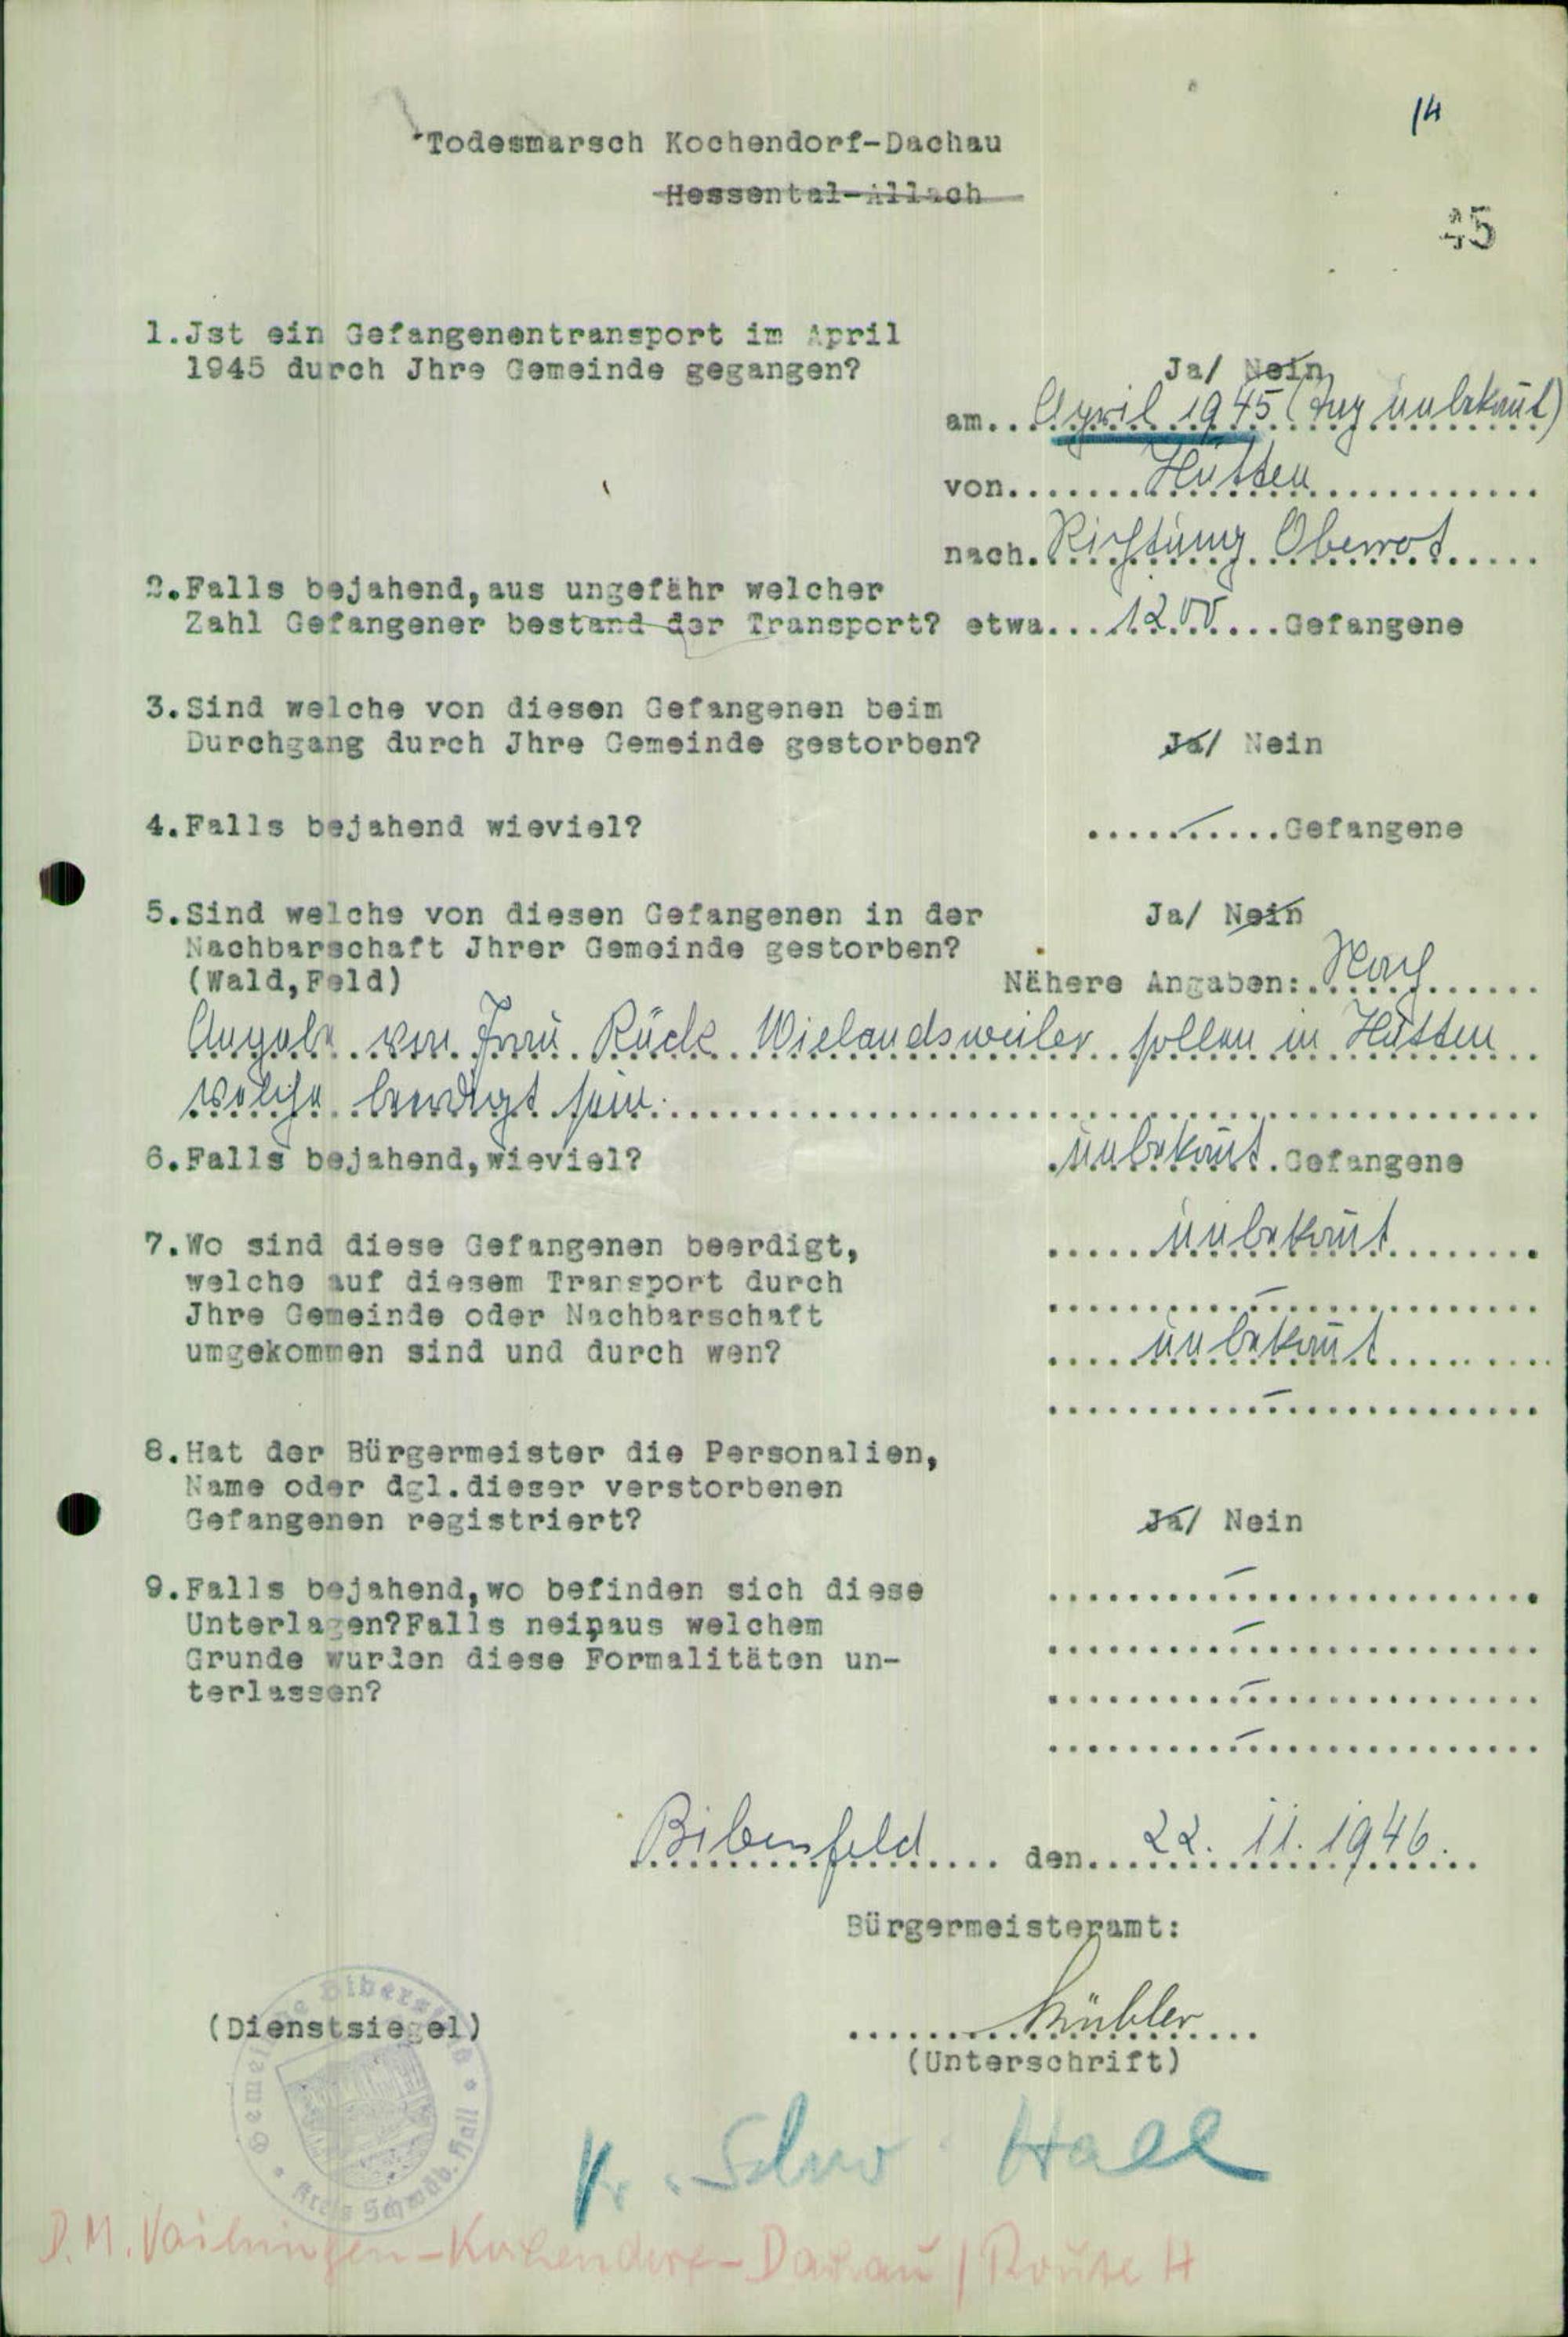 14
Todesmarsch Kochendorf-Dachau
Hessental-Allach
45
1.Jst ein Gefangenentransport im April
1945 durch Jhre Gemeinde gegangen? Ja/ Nein
am..April 1945 (Tag unbekannt)
von.......Hütten............
nach.Richtung Oberrot.....
2.Falls bejahend,aus ungefähr welcher
Zahl Gefangener bestand der Transport? etwa...1200....Gefangene
3.Sind welche von diesen Gefangenen beim
Durchgang durch Jhre Gemeinde gestorben? Ja/ Nein
4.Falls bejahend wieviel? ..........Gefangene
5.Sind welche von diesen Gefangenen in der Ja/ Nein
Nachbarschaft Jhrer Gemeinde gestorben?
(Wald,Feld) Nähere Angaben:.Nach......
Angabe von Frau Rück Wielandsweiler sollen in Hütten..
welche beerdigt sein.
6.Falls bejahend,wieviel? unbekannt.Gefangene
7.Wo sind diese Gefangenen beerdigt, .....unbekannt........
welche auf diesem Transport durch
Jhre Gemeinde oder Nachbarschaft –
umgekommen sind und durch wen? ....unbekannt.........
–
8.Hat der Bürgermeister die Personalien,
Name oder dgl.dieser verstorbenen
Gefangenen registriert? Ja/ Nein
9.Falls bejahend,wo befinden sich diese –
Unterlagen?Falls nein,aus welchem –
Grunde wurden diese Formalitäten un- –
terlassen? –
Bibersfeld.... den...22. 11. 1946.
Bürgermeisteramt:
(Dienstsiegel) Kübler
(Unterschrift)
Gemeinde Bibersfeld
Kreis Schwäb. Hall
Kr. Schw. Hall
D.M. Vaihingen-Kochendorf-Dachau / Route H